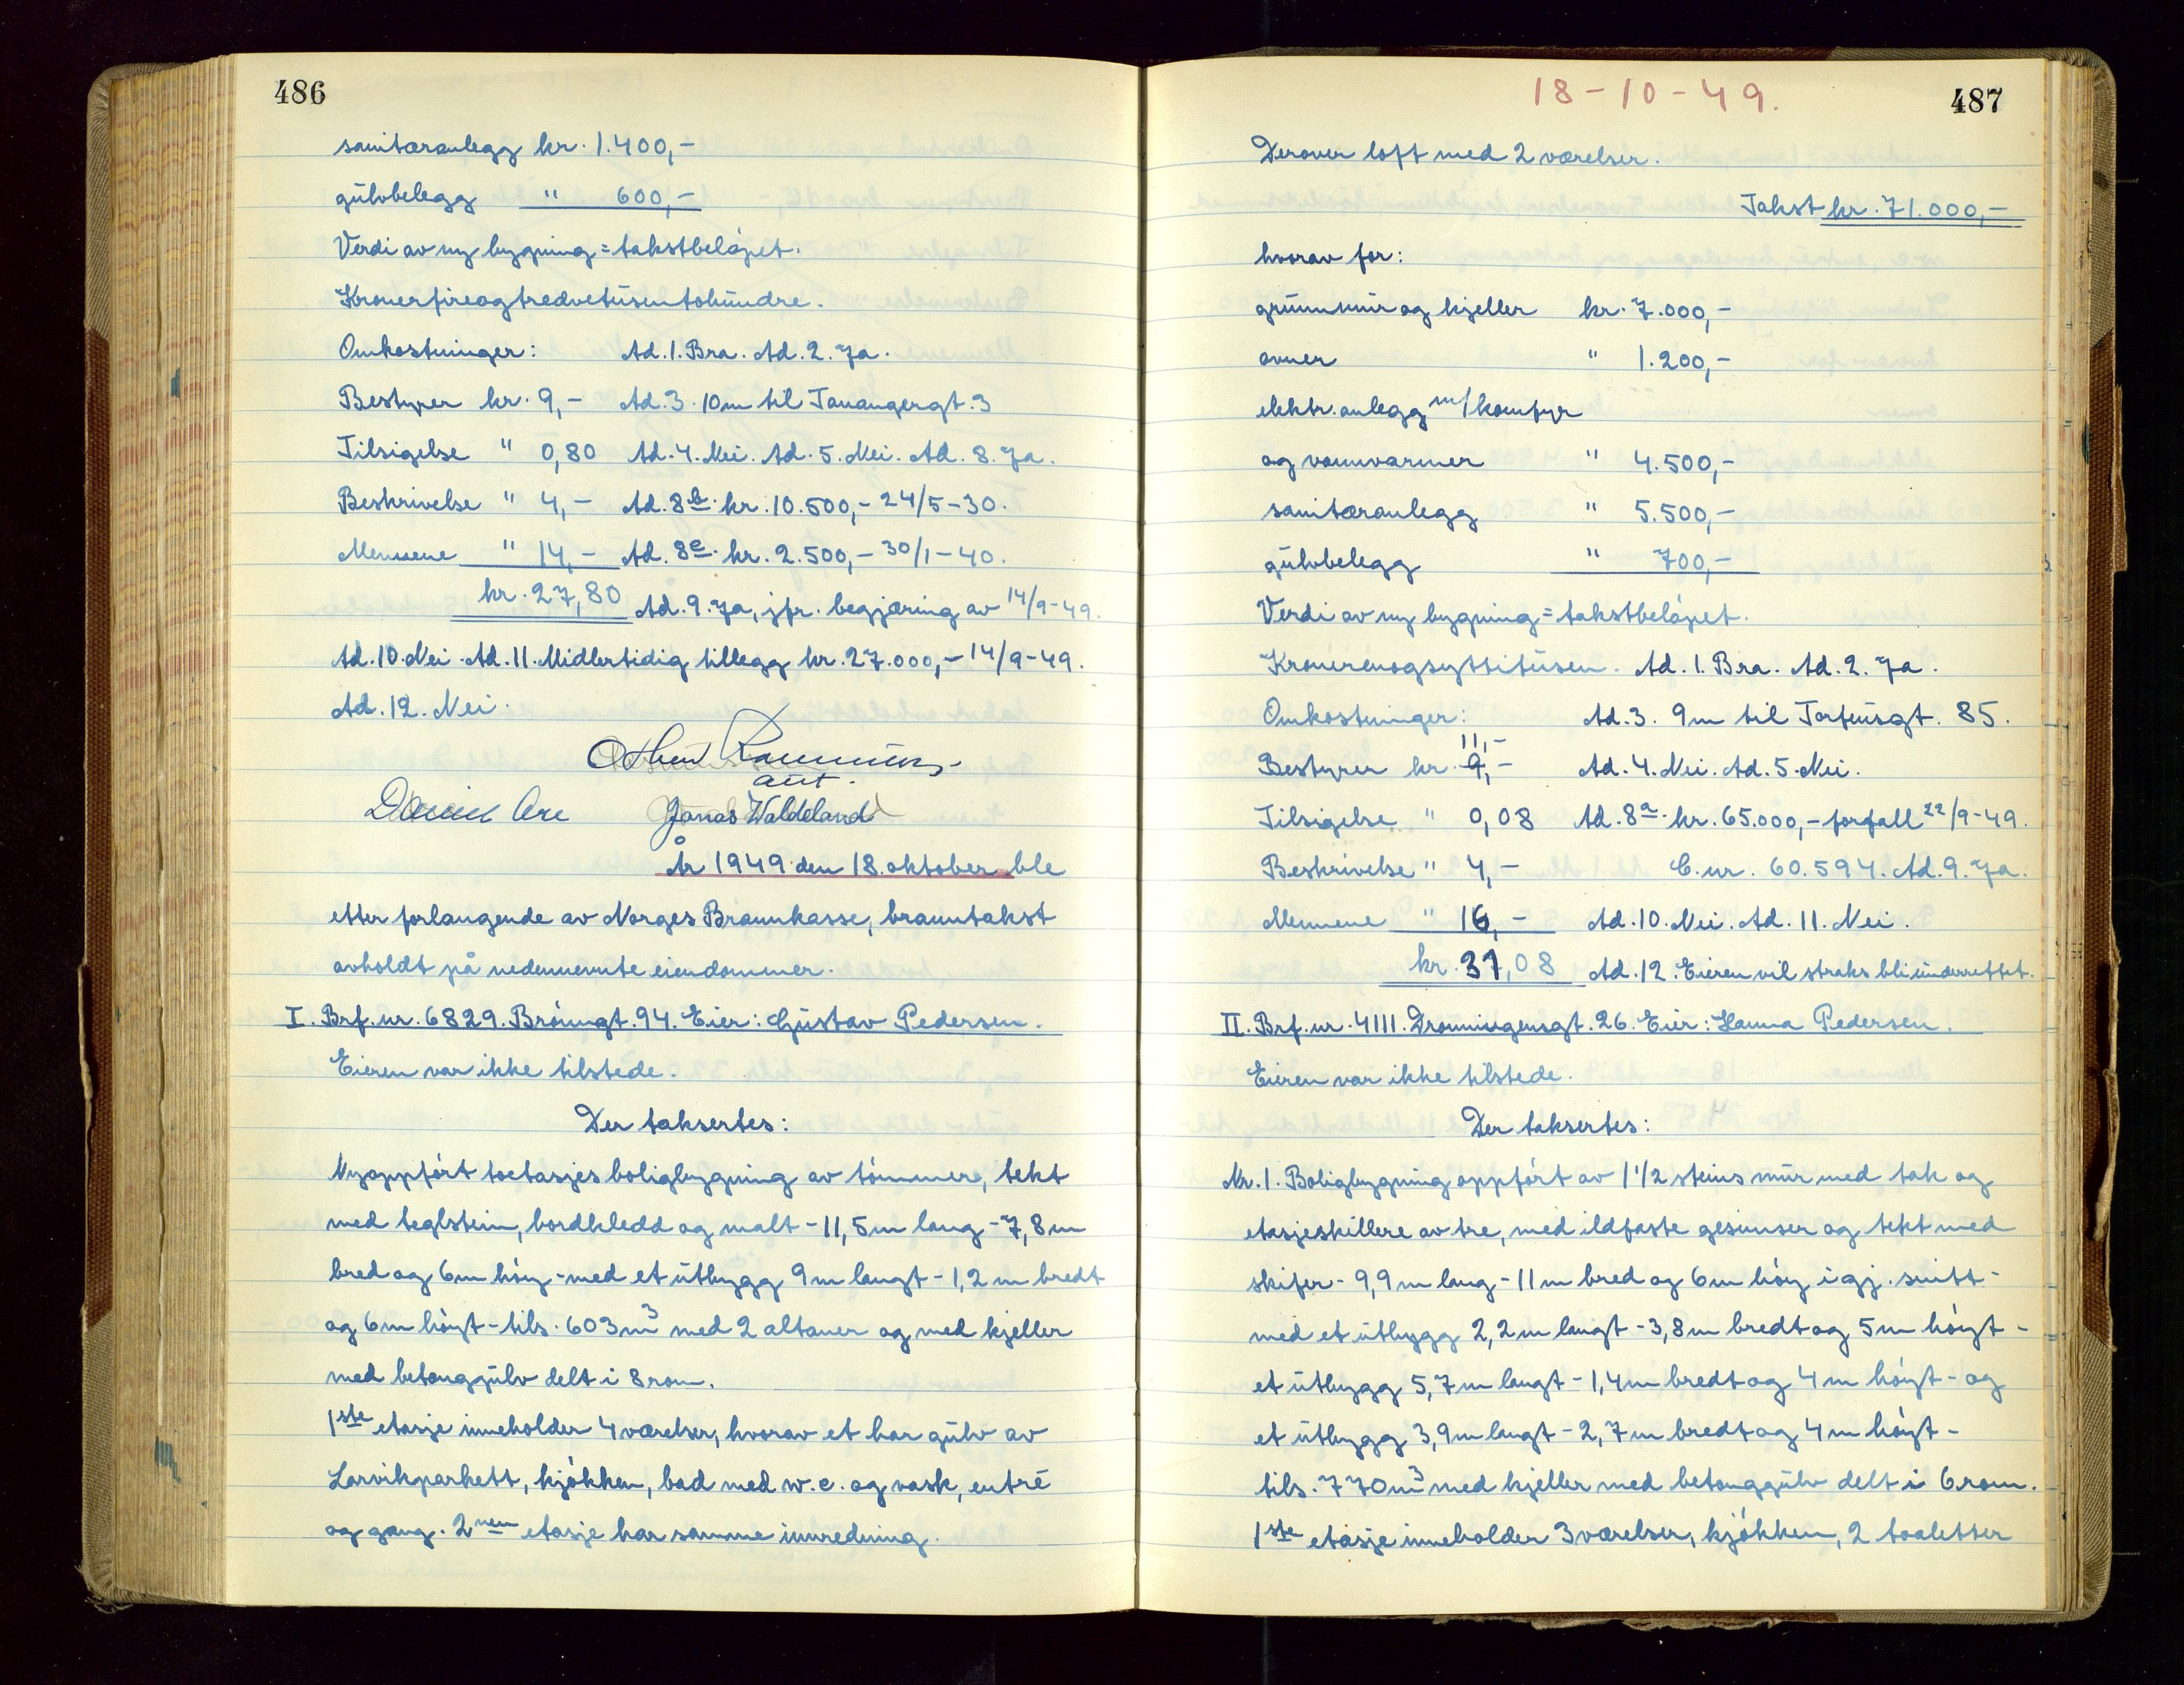 486
sanitæranlegg kr. 1.400,-
gulvbelegg " 600,-
Verdi av ny bygning = takstbeløpet.
Kronerfireogtredvetusentohundre.
Omkostninger: Ad. 1. Bra. Ad. 2. Ja.
Bestyrer kr. 9,- Ad. 3. 10m til Tanangergt. 3
Tilsigelse " 0,80 Ad. 4. Nei. Ad. 5. Nei. Ad. 8. Ja.
Beskrivelse " 4,- Ad. 8b. kr. 10.500,- 24/5-30.
Mennene " 14,- Ad. 8c. kr. 2.500,- 30/1-40.
kr. 27,80 Ad. 9. Ja, jfr. begjæring av 14/9-49.
Ad. 10. Nei. Ad. 11. Midlertidig tillegg kr. 27.000,- 14/9-49.
Ad. 12. Nei.
aut.
Jonas Waldeland
År 1949 den 18. oktober ble
etter forlangende av Norges Brannkasse, branntakst
avholdt på nedennevnte eiendommer.
I. Brf. nr. 6829. Brönngt. 94. Eier: Gustav Pedersen.
Eieren var ikke tilstede.
Der taksertes:
Nyoppført toetasjes boligbygning av tømmer, tekt
med teglstein, bordkledd og malt - 11,5m lang - 7,8m
bred og 6m høy - med et utbygg 9m langt - 1,2m bredt
og 6m høyt - tils. 603m3 med 2 altaner og med kjeller
med betonggulv delt i 8 rom.
1ste etasje inneholder 4 værelser, hvorav et har gulv av
Larvikparkett, kjøkken, bad med w.c. og vask, entré
og gang. 2nen etasje har samme innredning.
18-10-49.
487
Derover loft med 2 værelser.
Takst kr. 71.000,-
hvorav for:
grunnmur og kjeller kr. 7.000,-
ovner " 1.200,-
elektr. anlegg m/komfyr
og vannvarmer " 4.500,-
sanitæranlegg " 5.500,-
gulvbelegg " 700,-
Verdi av ny bygning = takstbeløpet.
Kronerenogsyttitusen. Ad. 1. Bra. Ad. 2. Ja.
Omkostninger: Ad. 3. 9m til Torfeusgt. 85.
11,-
Bestyrer kr. 9,- Ad. 4. Nei. Ad. 5. Nei.
Tilsigelse " 0,08 Ad. 8a. kr. 65.000,- forfall 22/9-49.
Beskrivelse " 4,- C. nr. 60.594. Ad. 9. Ja.
Mennene " 16,- Ad. 10. Nei. Ad. 11. Nei.
kr. 31,08 Ad. 12. Eieren vil straks bli underrettet.
II. Brf. nr. 4111. Dronningensgt. 26. Eier: Hanna Pedersen.
Eieren var ikke tilstede.
Der taksertes:
Nr. 1. Boligbygning oppført av 1 1/2 steins mur med tak og
etasjeskillere av tre, med ildfaste gesimser og tekt med
skifer - 9,9m lang - 11m bred og 6m høy i gj. snitt -
med et utbygg 2,2m langt - 3,8m bredt og 5m høyt -
et utbygg 5,7m langt - 1,4m bredt og 4m høyt - og
et utbygg 3,9m langt - 2,7m bredt og 4m høyt -
tils. 770m3 med kjeller med betonggulv delt i 6 rom.
1ste etasje inneholder 3 værelser, kjøkken, 2 toaletter